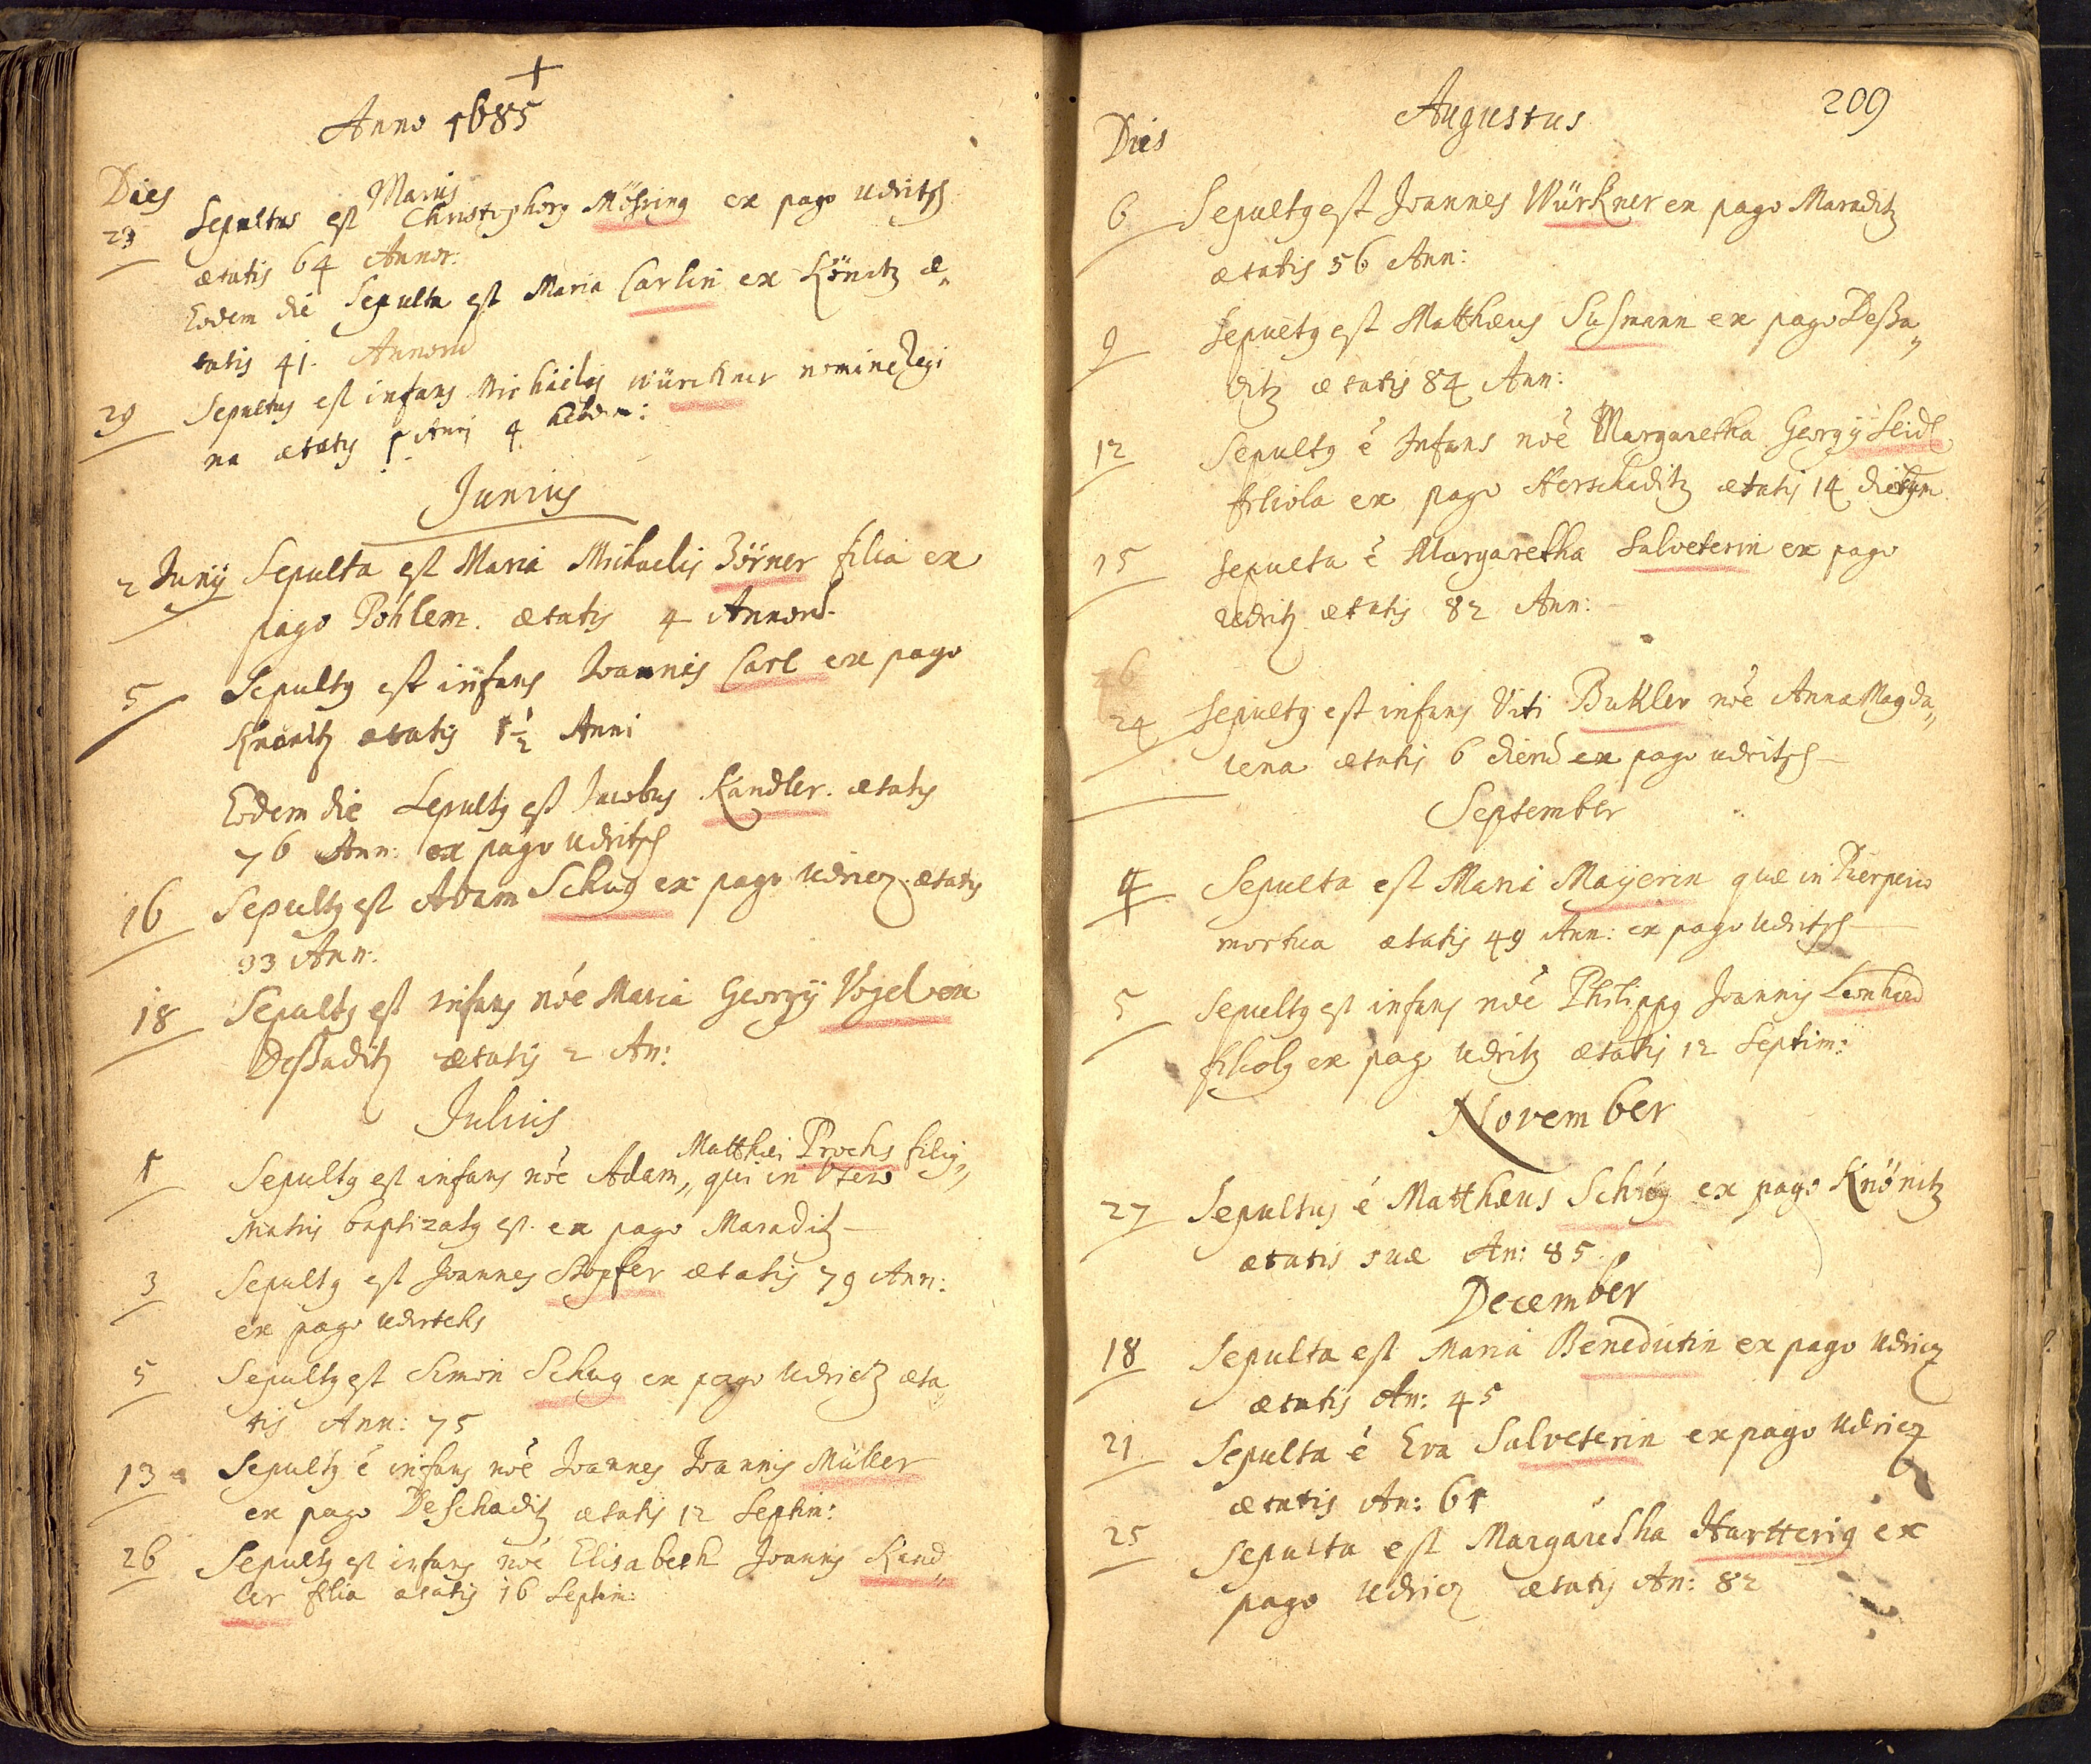 Anno 1685
Dies Maius
23 Sepultus est Christophorg Möhring ex pago Udritsch
ætatis 64 Annor:
Eodem die Sepulta est Maria Carlin ex Könitz æ„
tatis 41. Annorum
29 Sepultus est infans Michaelis Würckner nomine Regi
na ætatis 1 Anni 4 hebdom:
Junius
2 Junij Sepulta est Maria Michaelis Zörner filia ex
pago Pohlem. ætatis 4 Annorum.
5 Sepultg est infans Joannis Carl ex pago
Knönitz ætatis 1½ Anni
Eodem die Sepultg est Jacobus Kandler. ætatis
76 Ann: ex pago Udritsch
16 Sepultg est Adam Schug ex pago Udricz. ætatis
93 Ann:
18 Sepultg est infans nōe Maria Georgij Vogel ex
Deßaditz ætatis 2 An:
Julius
Matthæi Prochs filig„
1 Sepultg est infans nōe Adam„ qui in Utero
Matris baptizatg est. ex pago Maraditz
3 Sepultg est Joannes Stopfer ætatis 79 Ann:
ex pago Udritchs
5 Sepultg est Simon Schug ex pago Udrictz æta„
tis Ann: 75
13 Sepultg ē infans nōe Joannes Joannis Müller
ex pago Deschaditz ætatis 12 Septim:
26 Sepultg est infans nōe Elisabeth Joannis Kand„
ler filia ætatis 16 Septim:
209
Augustus
Dies
6 Sepultg est Joannes Würkner ex pago Maraditz
ætatis 56 Ann:
9 Sepultg est Matthæus Susmann ex pago Deßa„
ditz ætatis 84 Ann:
12 Sepultg ē Infans nōe Margaretha Georgij Seidl
filiola ex pago Herschaditz ætatis 14 dierum
15 Sepulta ē Margaretha Salveterin ex pago
Udritz ætatis 82 Ann:
26
24 Sepultg est infans Viti Bukler nōe Anna Magda„
lena ætatis 6 dierum ex pago Udritsch
September
4 Sepulta est Maria Mayerin quæ in Puerperio
mortua ætatis 49 Ann: ex pago Udritsch
5 Sepultg est infans nōe Philippg Joannis Leonhard
filiolg ex pago Udritz ætatis 12 Septim:
November
27 Sepultus ē Matthæus Schüg ex pago Knönitz
ætatis suæ An: 85.
December
18 Sepulta est Maria Benedictin ex pago Udricz
ætatis An: 45
21 Sepulta ē Eva Salveterin ex pago Udricz
ætatis An: 61
25 Sepulta est Margaretha Hartterig ex
pago Udricz ætatis An: 82